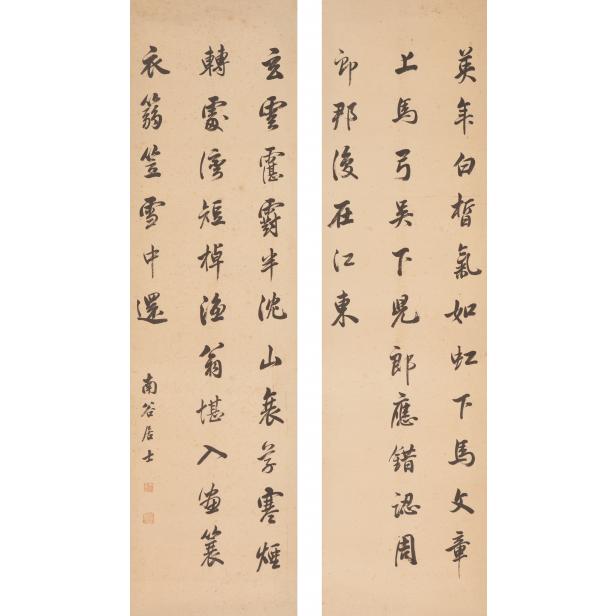 英年白皙氣如虹下馬文章
上馬弓吳下兒郎應錯認周
郎那復在江東
玄雲霮䨴半沈山衰草寒煙
轉處灣短棹漁翁堪入畫簑
衣篛笠雪中還
南谷居士